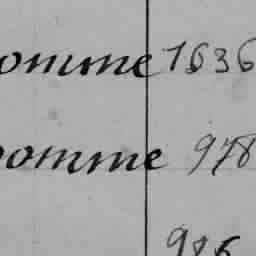 omme 1636
omme 978
986